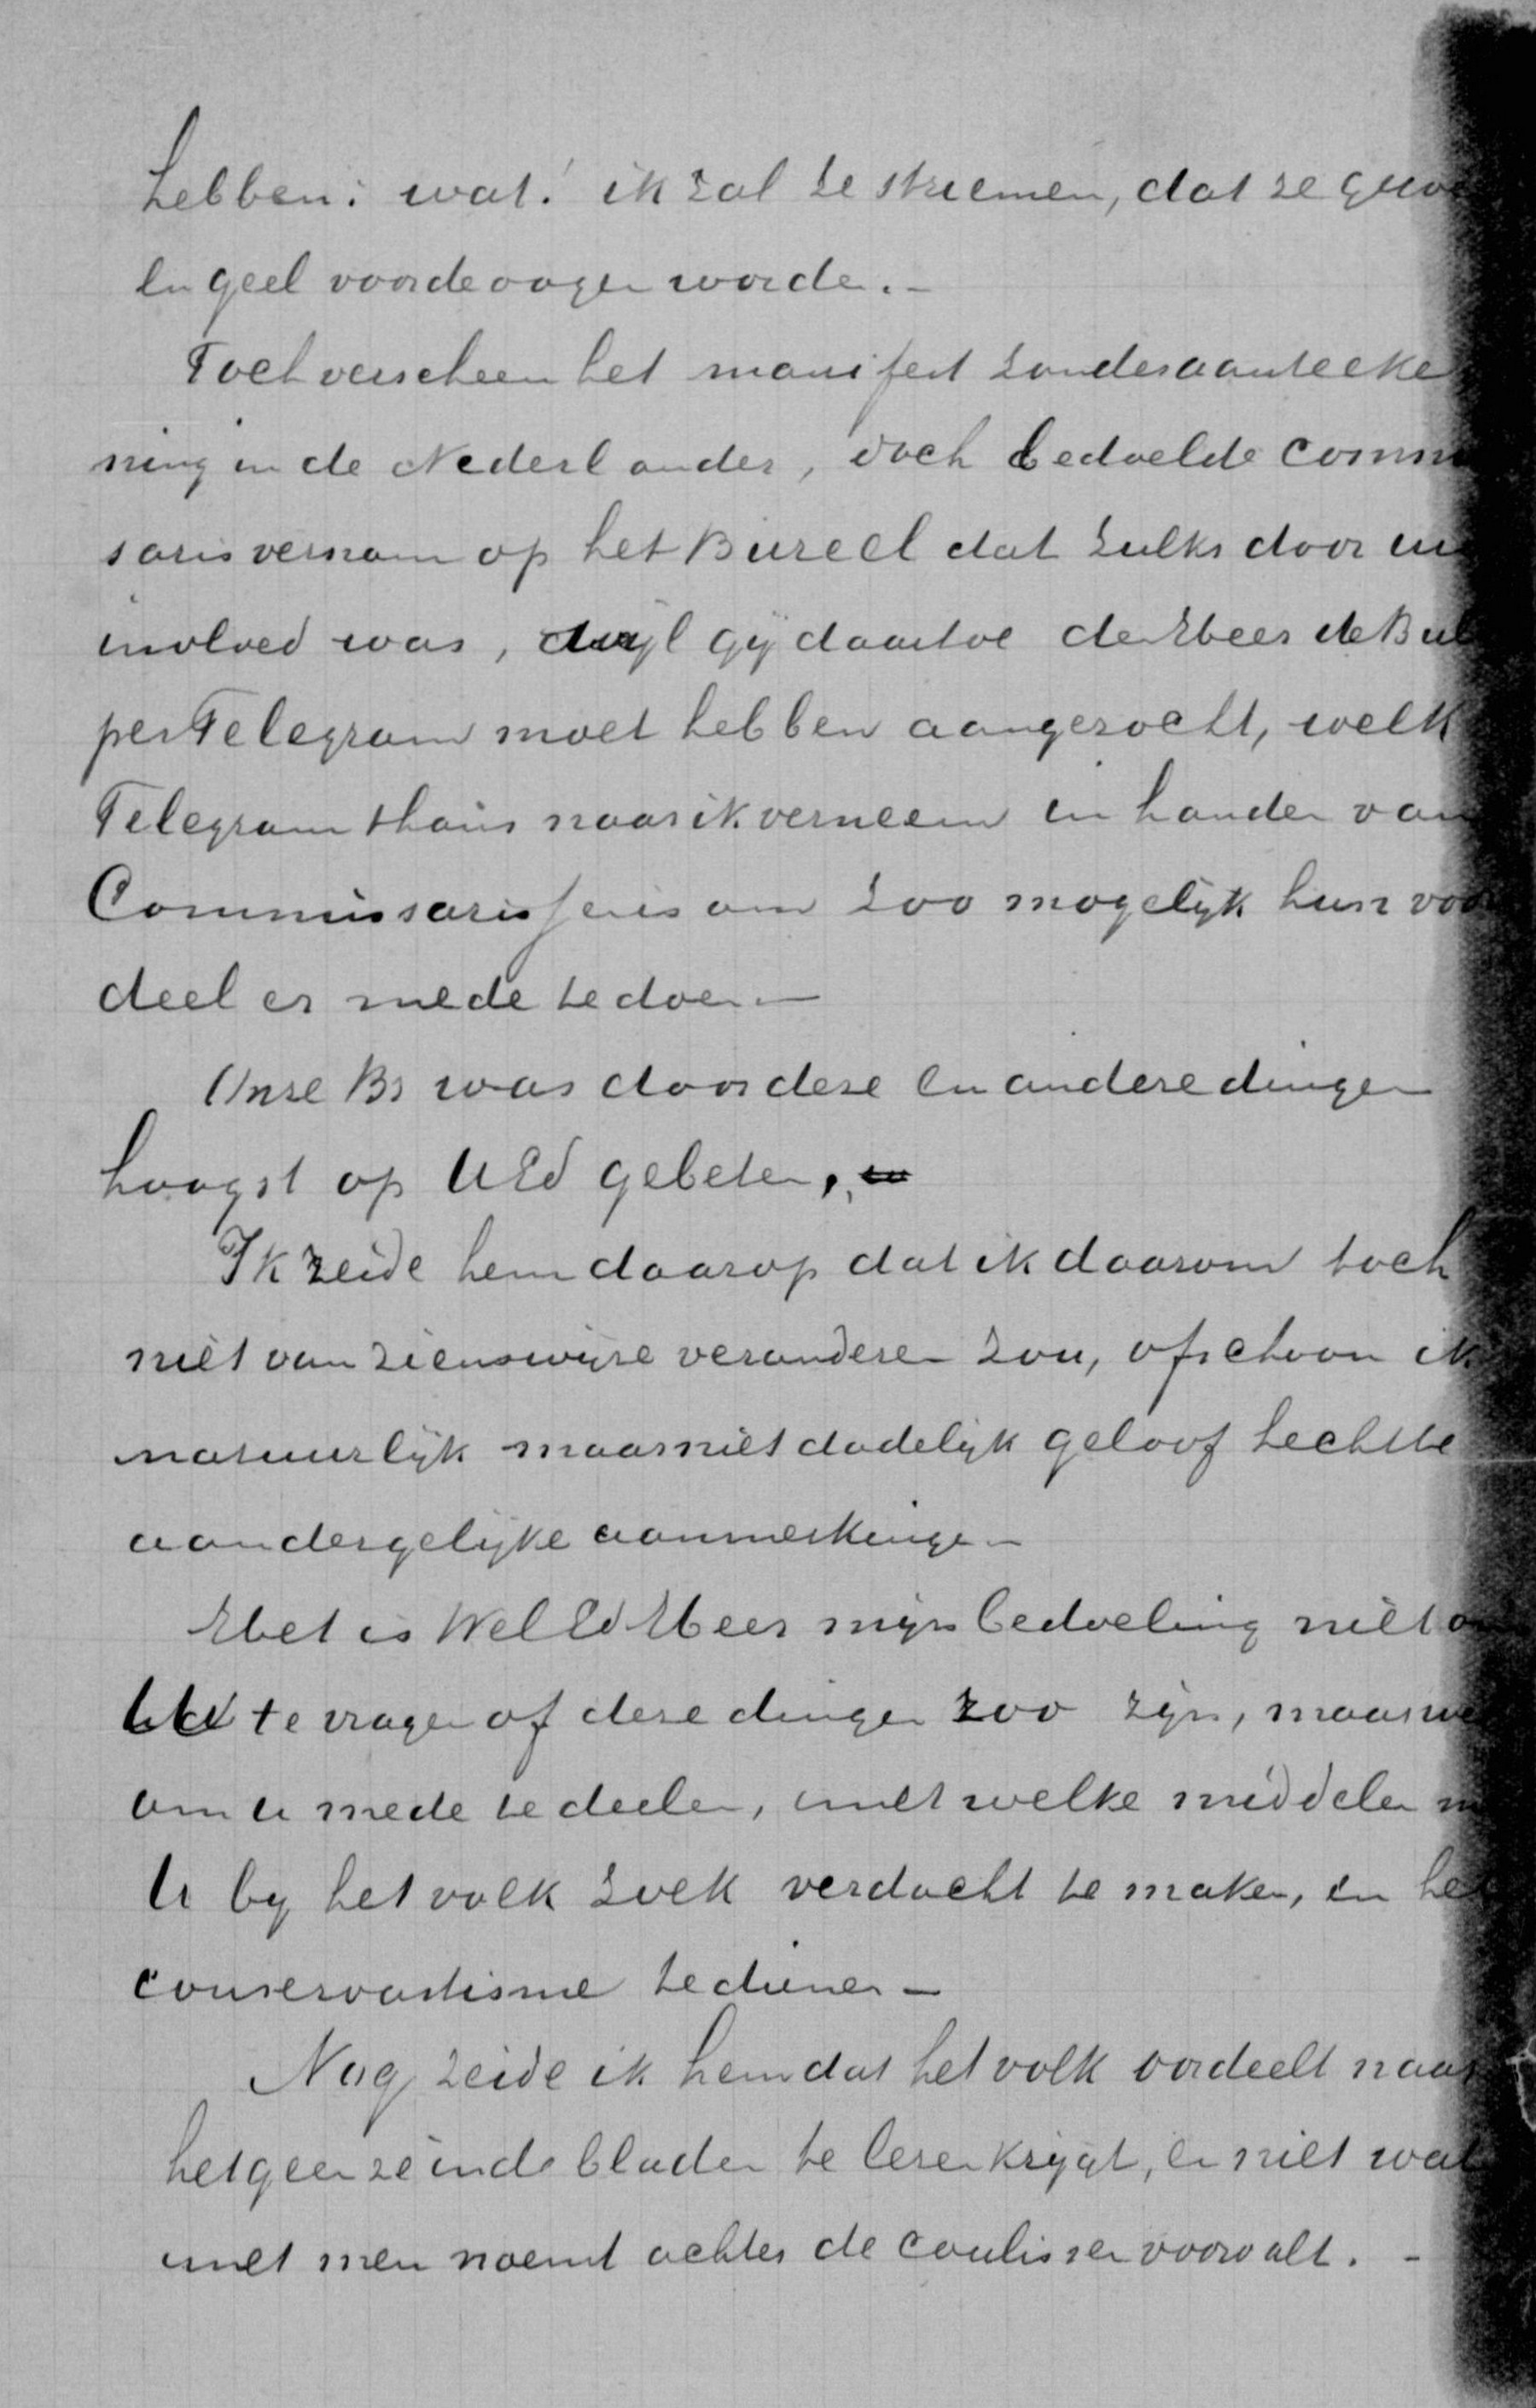 hebben: wat! ik zal ze striemen, dat ze
en geel voor de oogen worden. –
Toch verscheen het manifest zonder aanteeke
ning in de Nederlander, doch bedoelde Comm
saris vernam op het Bureel dat zulks door
invloed was, dwijl gij daartoe den Heer de
per Telegram moet hebben aangezocht, welk
Telegram thans naar ik verneem in handen van
Commissarissen is om zoo mogelijk hun voor
deel er mede te doen. –
Onze Br was door deze en andere dingen
hoogst op UEd gebeten,
Ik zeide hem daarop dat ik daarom toch
niet van zienswijze veranderen zou, ofschoon ik
natuurlijk maar niet dadelijk geloof hechtte
aan dergelijke aanmerkingen
Het is WelEd Heer mijn bedoeling niet om
te vragen of deze dingen zoo zijn, maar
om u mede te deelen, met welke middelen
U bij het volk zoek verdacht te maken, en het
conservatisme te dienen –
Nog zeide ik hem dat het volk oordeelt naar
hetgeen ze in de bladen te lezen krijgt, en niet wat
met men noemt achter de coulissen voorvalt. –